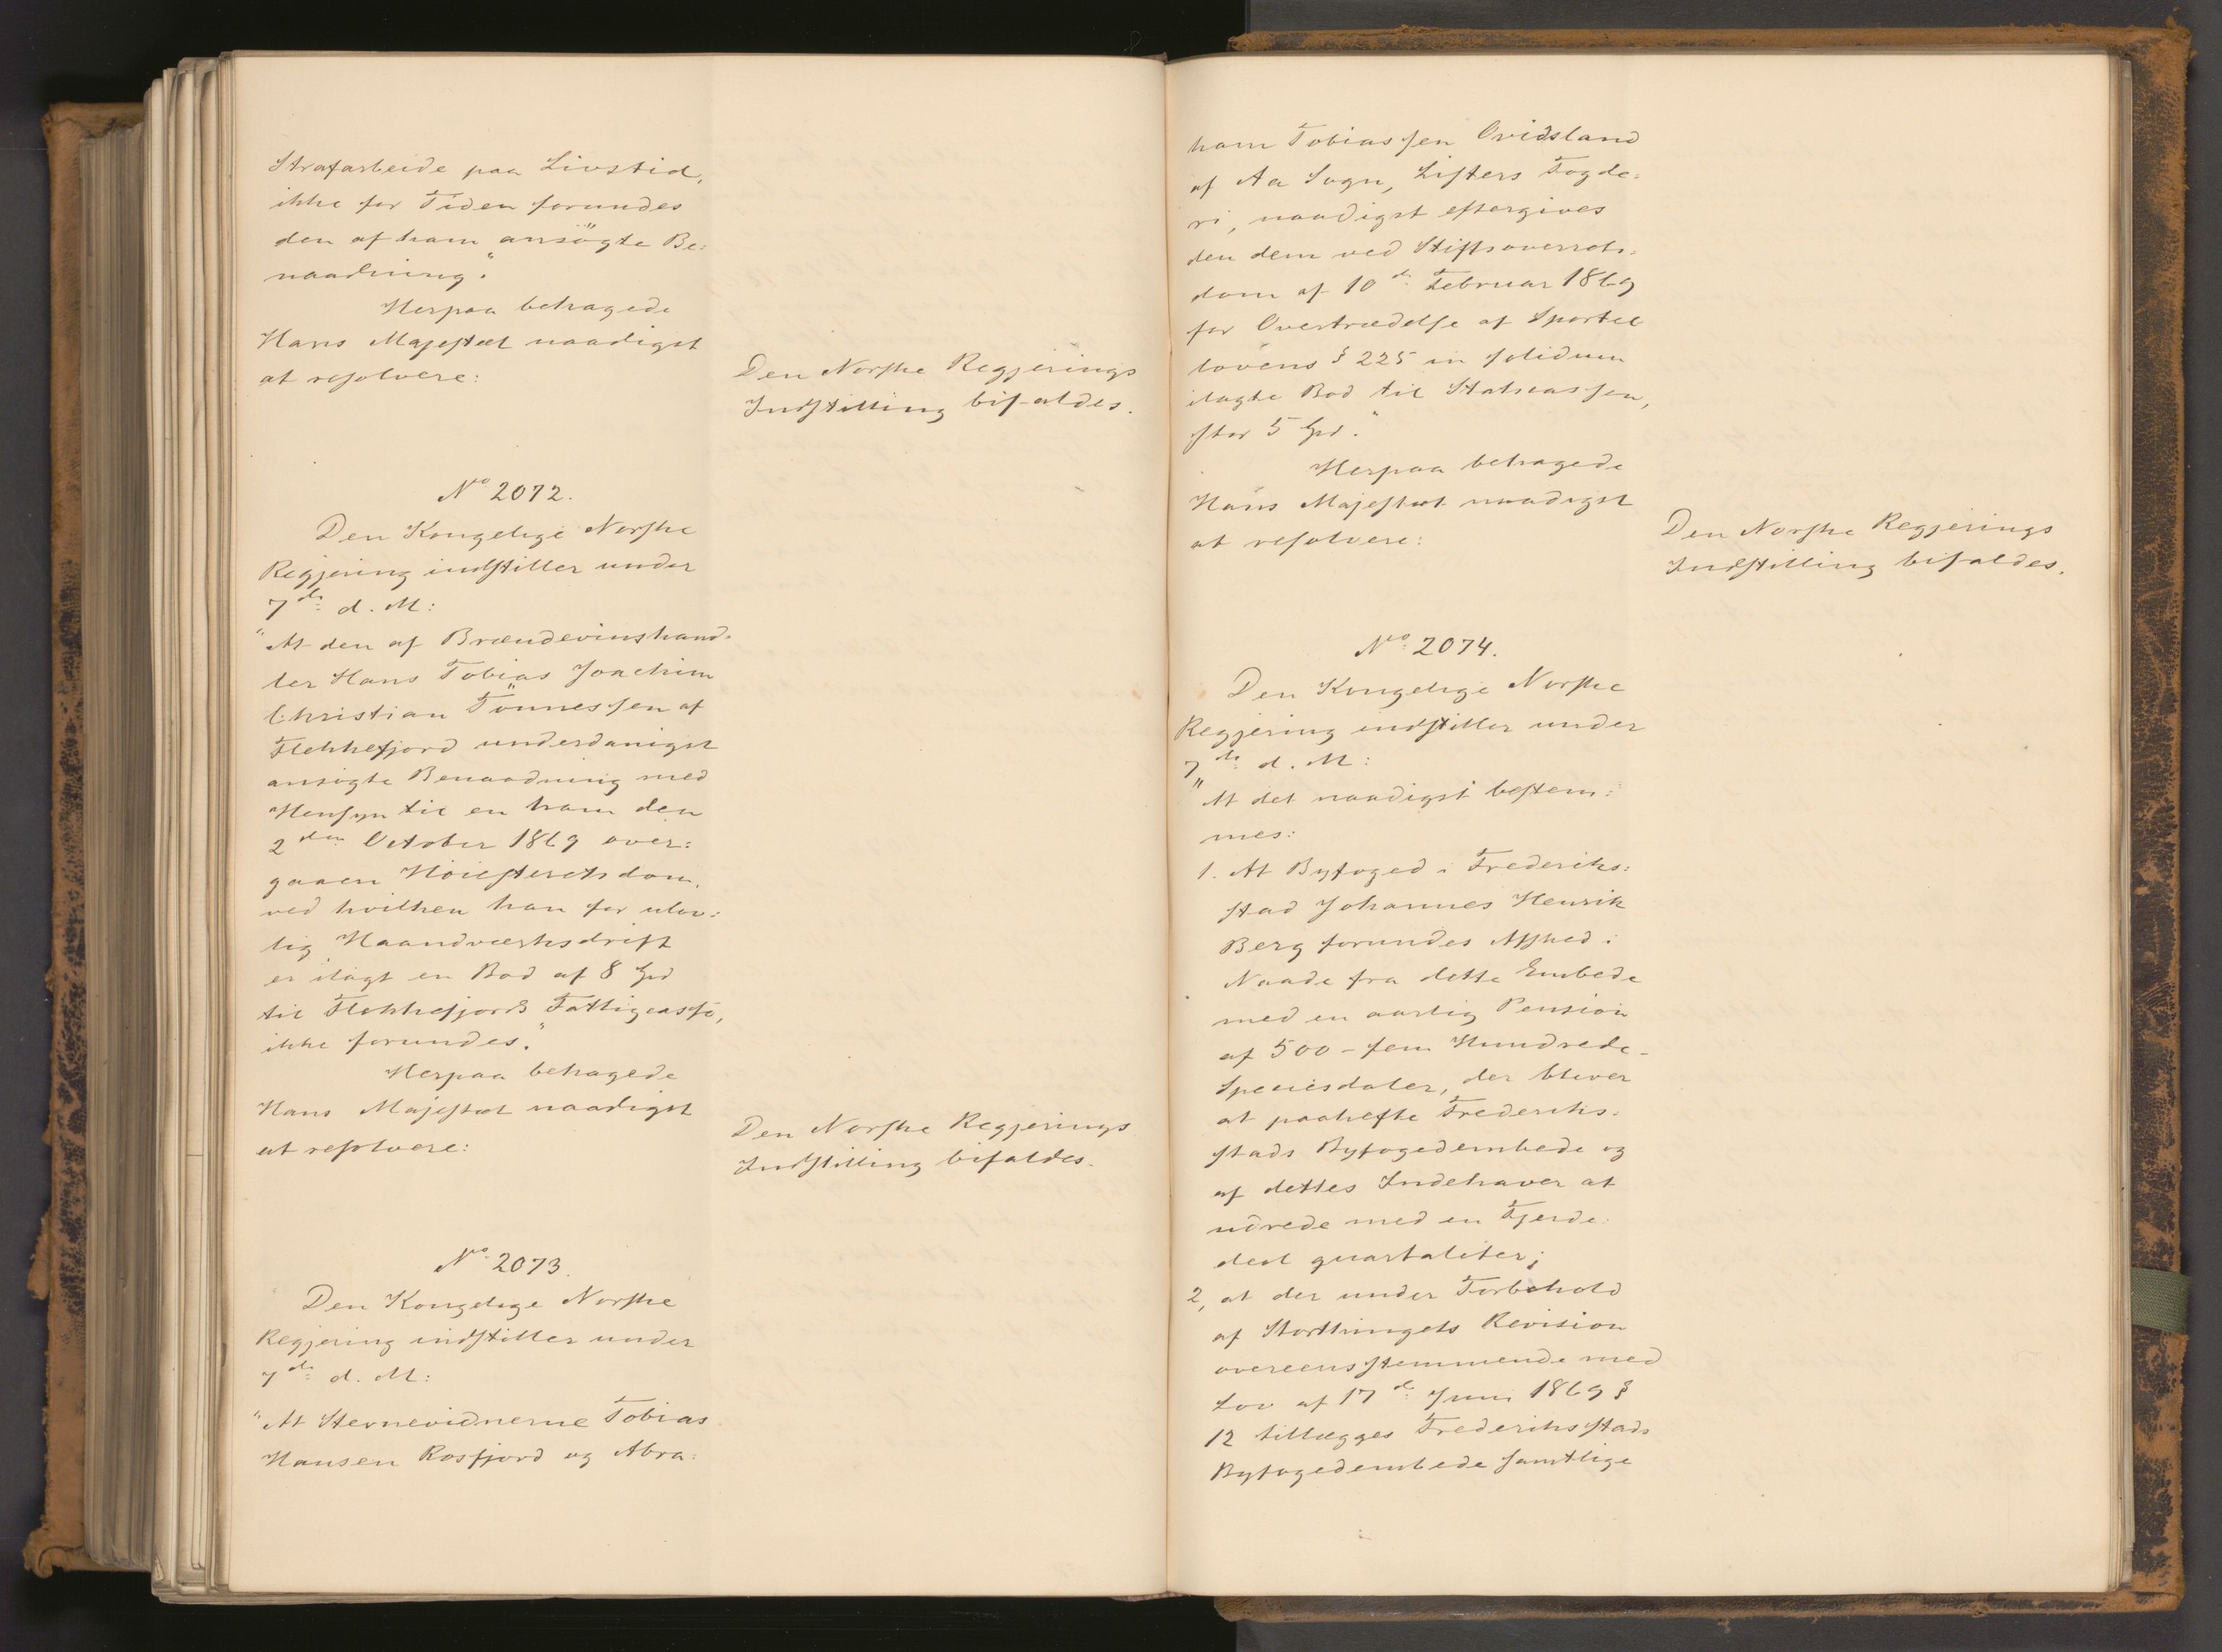 Strafarbeide paa Livstid,
ikke for Tiden forundes
den af ham ansøgte Be-
naadning."
Herpaa behagede
Hans Majestæt naadigst
at resolvere:
Den Norske Regjerings
Indstilling bifaldes.
No 2072.
Den Kongelige Norske
Regjering indstiller under
7de d. M:
"At den af Brændevinshand-
ler Hans Tobias Joachim
Christian Tönnessen af
Flekkefjord underdanigst
ansøgte Benaadning med
Hensyn til en ham den
2den October 1869 over-
gaaen Höiesteretsdom,
ved hvilken han for ulov-
lig Haandværksdrift
er ilagt en Bod af 8 Spd
til Flekkefjords Fattigcasse,
ikke forundes."
Herpaa behagede
Hans Majestæt naadigst
at resolvere:
Den Norske Regjerings
Indstilling bifaldes.
No 2073.
Den Kongelige Norske
Regjering indstiller under
7de d. M:
"At Stevnevidnerne Tobias
Hansen Rosfjord og Abra-
ham Tobiassen Ovidsland
af Aa Sogn, Listers Fogde-
ri, naadigst eftergives
den dem ved Stiftsoverrets-
dom af 10de Februar 1869
for Overtrædelse af Sportel
lovens § 225 in solidum
ilagte Bod til Statscassen,
stor 5 Spd."
Herpaa behagede
Hans Majestæt naadigst
at resolvere:
Den Norske Regjerings
Indstilling bifaldes.
No 2074.
Den Kongelige Norske
Regjering indstiller under
7de d. M:
"At det naadigst bestem-
mes:
1. At Byfoged i Frederiks-
stad Johannes Henrik
Berg forundes Afsked i
Naade fra dette Embede
med en aarlig Pension
af 500 - fem Hundrede -
Speciesdaler, der bliver
at paahefte Frederiks-
stads Byfogedembede og
af dettes Indehaver at
udrede med en Fjerde-
deel quartaliter;
2, at der under Forbehold
af Storthingets Revision
overeensstemmende med
Lov af 17de Juni 1869 §
12 tillægges Frederiksstads
Byfogedembede samtlige